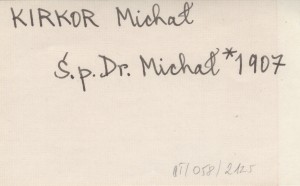 KIRKOR Michał
Ś.p. Dr. Michał * 1907
BT/058/2125